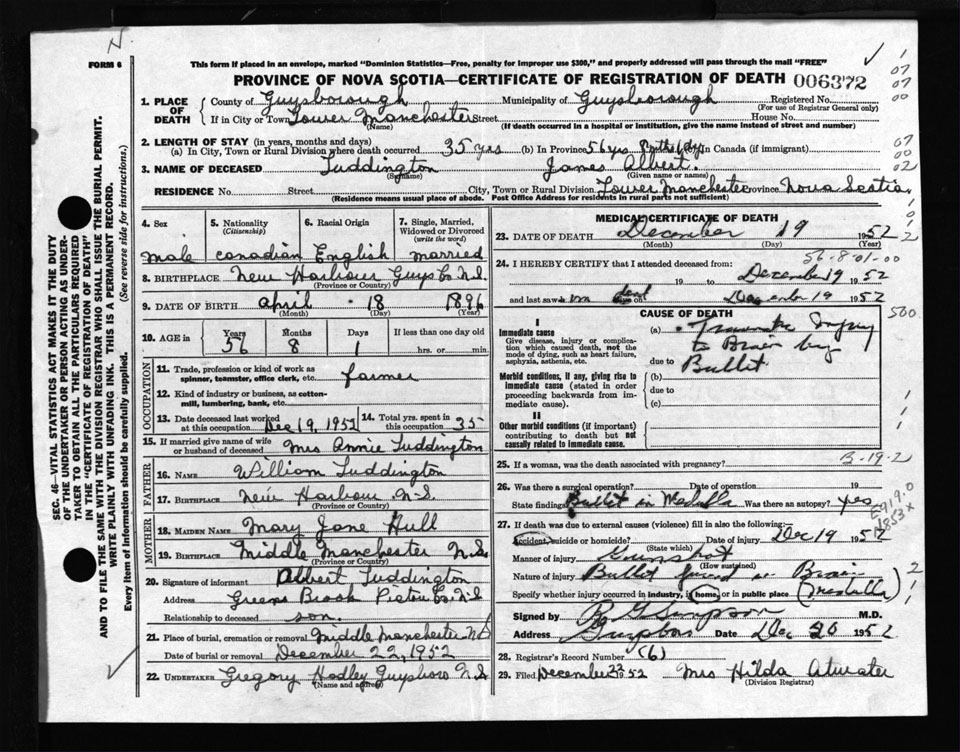 N
FORM 6
This form if placed in an envelope, marked "Dominion Statistics—Free, penalty for improper use $300," and properly addressed will pass through the mail "FREE"
PROVINCE OF NOVA SCOTIA—CERTIFICATE OF REGISTRATION OF DEATH 006372
1. PLACE OF DEATH County of Guysborough Municipality of Guysborough Registered No.
(For use of Registrar General only)
If in City or Town Lower Manchester Street House No.
(Name) (If death occurred in a hospital or institution, give the name instead of street and number)
2. LENGTH OF STAY (in years, months and days)
(a) In City, Town or Rural Division where death occurred 35 yrs (b) In Province 56 yrs (c) In Canada (if immigrant)
3. NAME OF DECEASED Luddington James Albert.
(Surname) (Given name or names)
RESIDENCE No. Street City, Town or Rural Division Lower Manchester Province Nova Scotia
(Residence means usual place of abode. Post Office Address for residents in rural parts not sufficient)
4. Sex 5. Nationality (Citizenship) 6. Racial Origin 7. Single, Married, Widowed or Divorced (write the word)
male Canadian English married
8. BIRTHPLACE New Harbour Guys Co N.S.
(Province or Country)
9. DATE OF BIRTH April 18 1896
(Month) (Day) (Year)
10. AGE in Years Months Days If less than one day old
56 8 1 hrs. or min.
OCCUPATION
11. Trade, profession or kind of work as spinner, teamster, office clerk, etc. farmer
12. Kind of industry or business, as cotton-mill, lumbering, bank, etc.
13. Date deceased last worked at this occupation Dec 19, 1952 14. Total yrs. spent in this occupation 35
15. If married give name of wife or husband of deceased Mrs Annie Luddington
FATHER
16. NAME William Luddington
17. BIRTHPLACE New Harbour N.S.
(Province or Country)
MOTHER
18. MAIDEN NAME Mary Jane Hull
19. BIRTHPLACE Middle Manchester N.S.
(Province or Country)
20. Signature of informant Albert Luddington
Address Greens Brook Pictou Co. N.S
Relationship to deceased son.
21. Place of burial, cremation or removal Middle Manchester NS
Date of burial or removal December 22, 1952
22. UNDERTAKER Gregory Hadley Guysboro N.S.
(Name and address)
MEDICAL CERTIFICATE OF DEATH
23. DATE OF DEATH December 19 1952
(Month) (Day) (Year)
56-8-01-00
24. I HEREBY CERTIFY that I attended deceased from:
19 to December 19 1952
and last saw him dead alive on December 19 1952
CAUSE OF DEATH
I
Immediate cause
Give disease, injury or complication which caused death, not the mode of dying, such as heart failure, asphyxia, asthenia, etc.
(a) Injury
to Brain by
due to Bullet
Morbid conditions, if any, giving rise to immediate cause (stated in order proceeding backwards from immediate cause).
(b)
due to
(c)
II
Other morbid conditions (if important) contributing to death but not causally related to immediate cause.
500
25. If a woman, was the death associated with pregnancy? B-19-2
26. Was there a surgical operation? Date of operation 19
State findings Bullet in Medulla Was there an autopsy? yes
E919.0
27. If death was due to external causes (violence) fill in also the following:
Accident, suicide or homicide? Date of injury Dec 19 1952
(State which)
Manner of injury Gunshot
(How sustained)
Nature of injury Bullet found in Brain
Specify whether injury occurred in industry, in home, or in public place (Medulla)
Signed by Simpson M.D.
Address Date Dec 20 1952
28. Registrar's Record Number (6)
29. Filed December 23 1952 Mrs Hilda Atwater
(Division Registrar)
SEC. 46—VITAL STATISTICS ACT MAKES IT THE DUTY
OF THE UNDERTAKER OR PERSON ACTING AS UNDER-
TAKER TO OBTAIN ALL THE PARTICULARS REQUIRED
IN THE "CERTIFICATE OF REGISTRATION OF DEATH"
AND TO FILE THE SAME WITH THE DIVISION REGISTRAR WHO SHALL ISSUE THE BURIAL PERMIT.
WRITE PLAINLY WITH UNFADING INK. THIS IS A PERMANENT RECORD.
Every item of information should be carefully supplied. (See reverse side for instructions.)